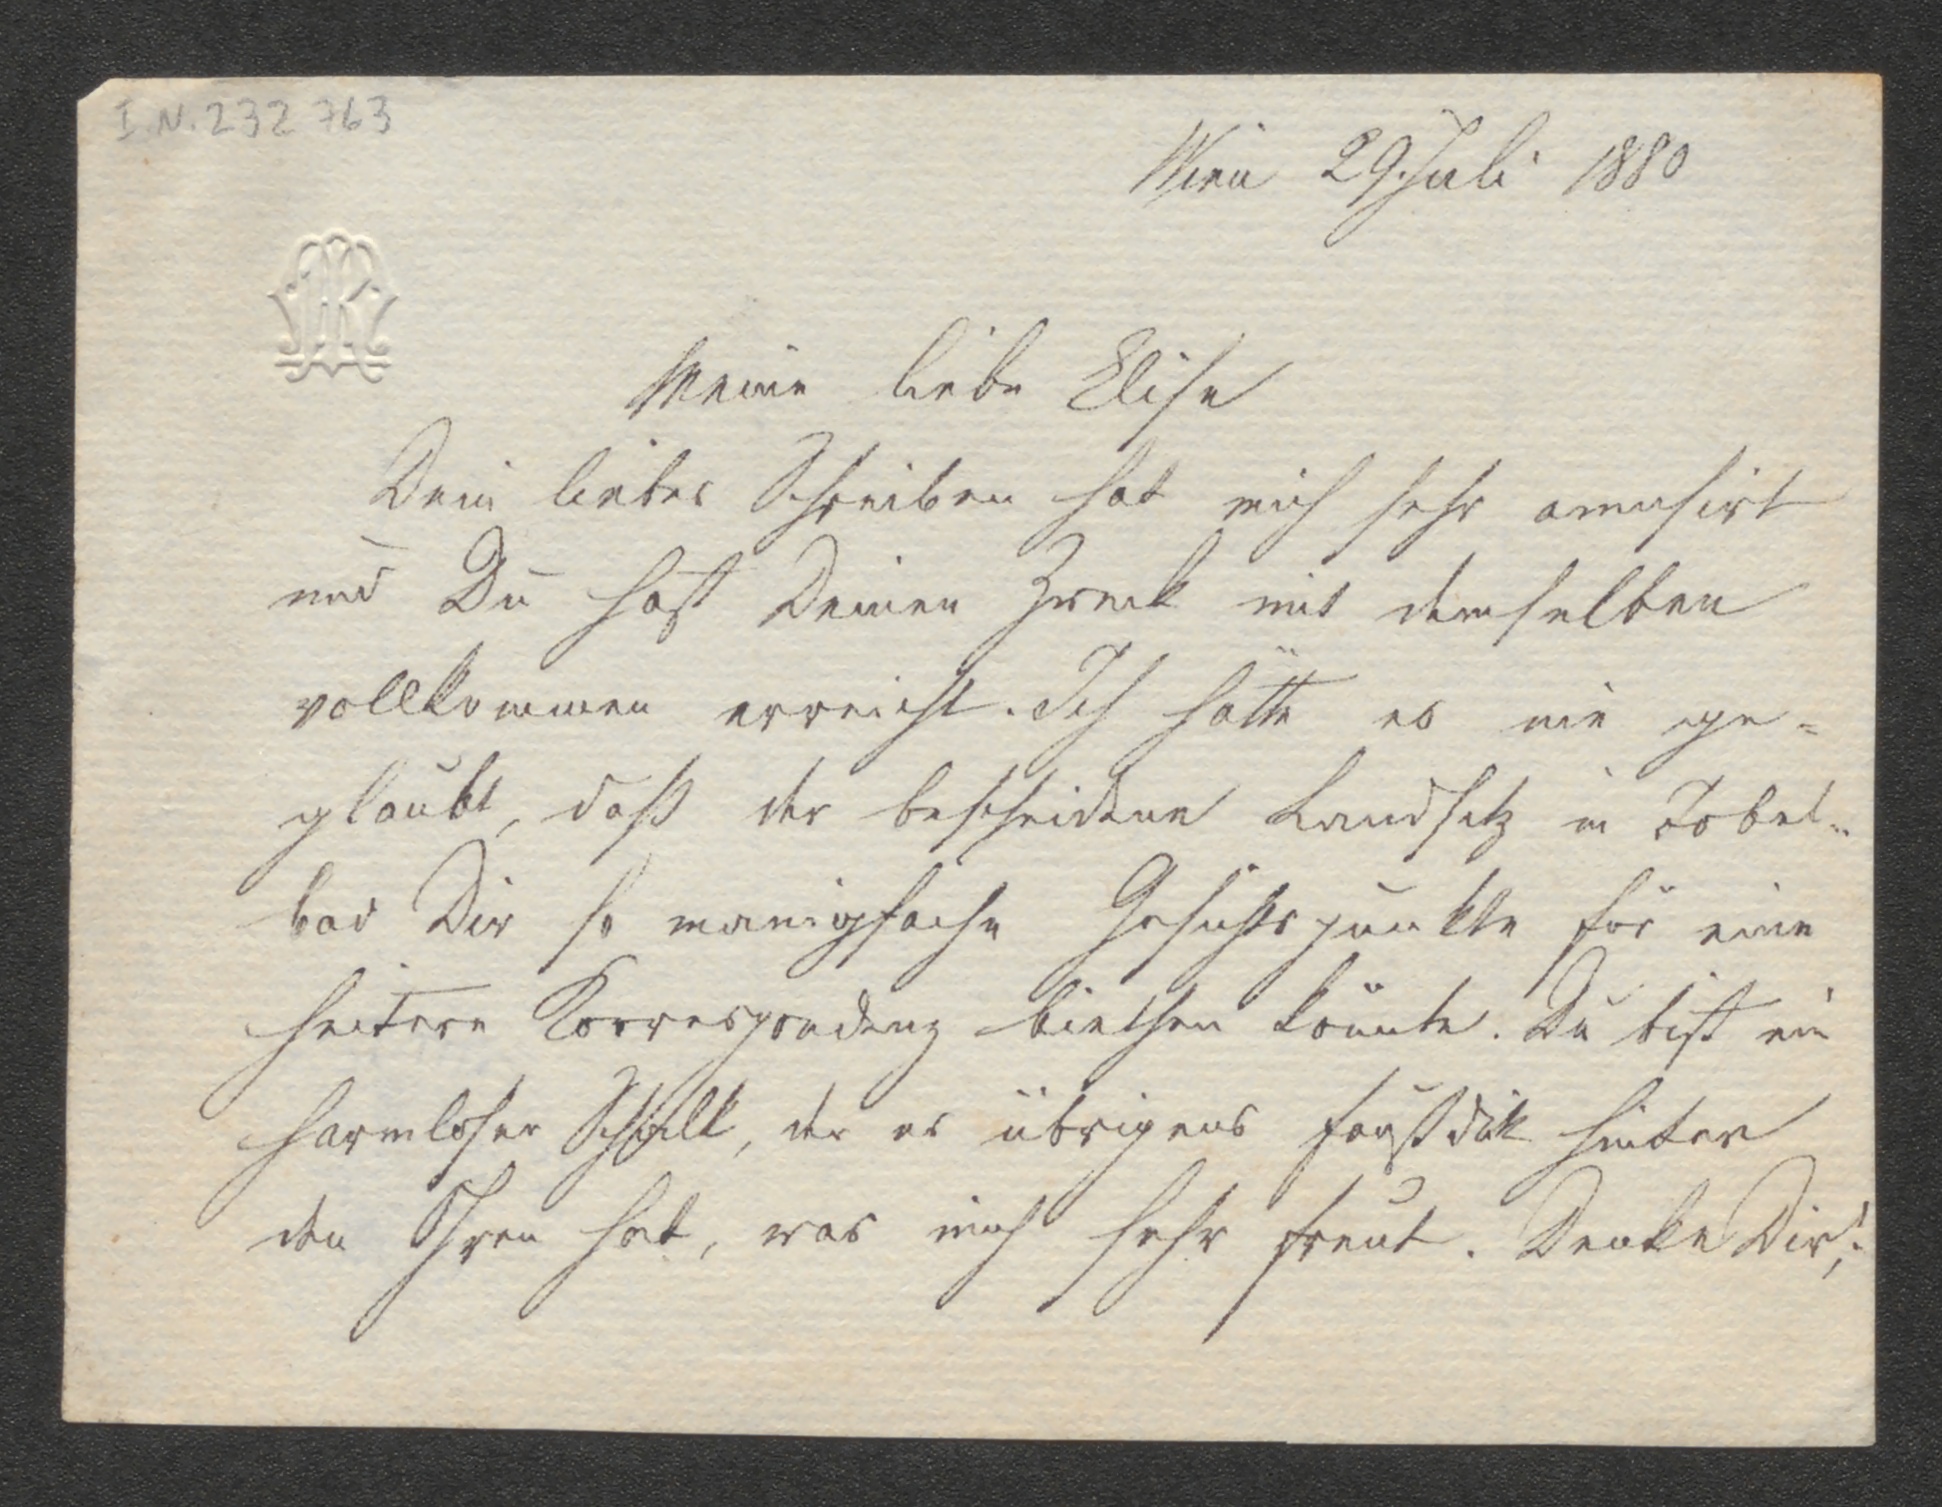 I.N. 232 763
Wien 29. Juli 1880
Meine liebe Elise
Dein liebes Schreiben hat mich sehr amusirt
und Du hast Deinen Zweck mit demselben
vollkommen erreicht. Ich hätte es nie ge-
glaubt, daß der bescheidene Landsitz in Tobel-
bad Dir so manigfache Gesichtspunkte für eine
heitere Korrespondenz biethen könnte. Du bist ein
harmloser Schalk, der es übrigens faustdik hinter
den Ohren hat, was mich sehr freut. Denke Dir,